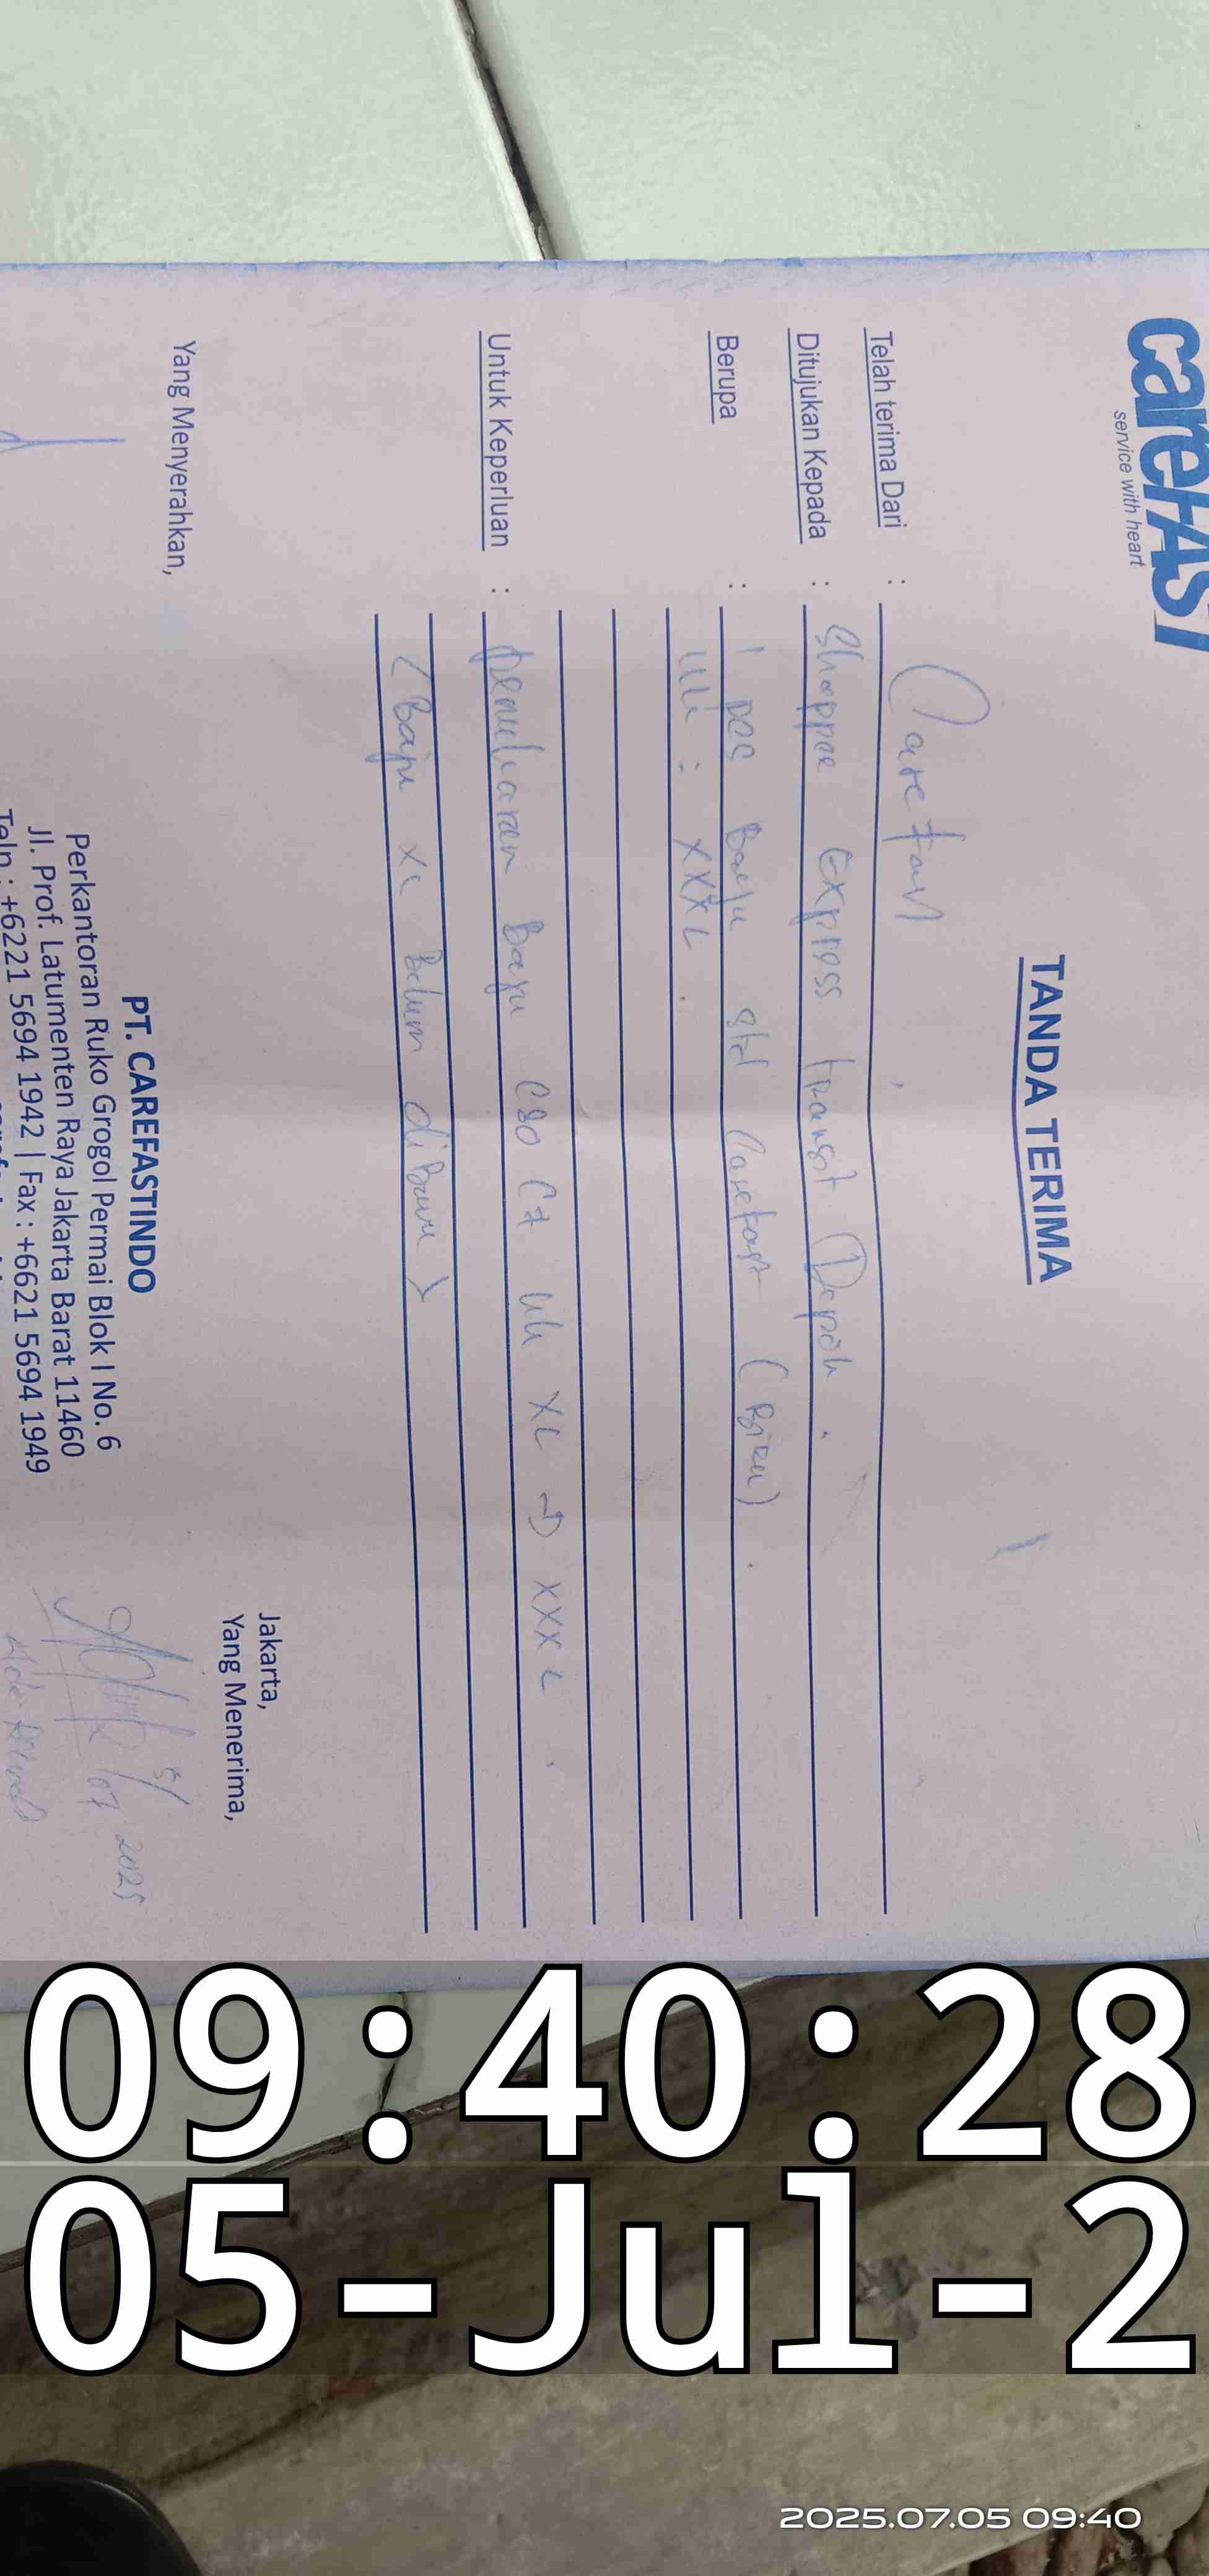 careFAST
service with heart
TANDA TERIMA
Telah terima Dari : Carefast
Ditujukan Kepada : Shoppee Express transit Depok.
Berupa : 1 pcs Baju std Carefast (Biru).
uk : XXXL.
Untuk Keperluan : penukaran Baju CSO CF uk XL → XXXL.
(Baju XL Belum diBawa)
Jakarta,
Yang Menyerahkan,
Yang Menerima,
5/07 2025
PT. CAREFASTINDO
Perkantoran Ruko Grogol Permai Blok I No. 6
Jl. Prof. Latumenten Raya Jakarta Barat 11460
Telp : +6221 5694 1942 | Fax : +6621 5694 1949
09:40:28
05-Jul-2
2025.07.05 09:40